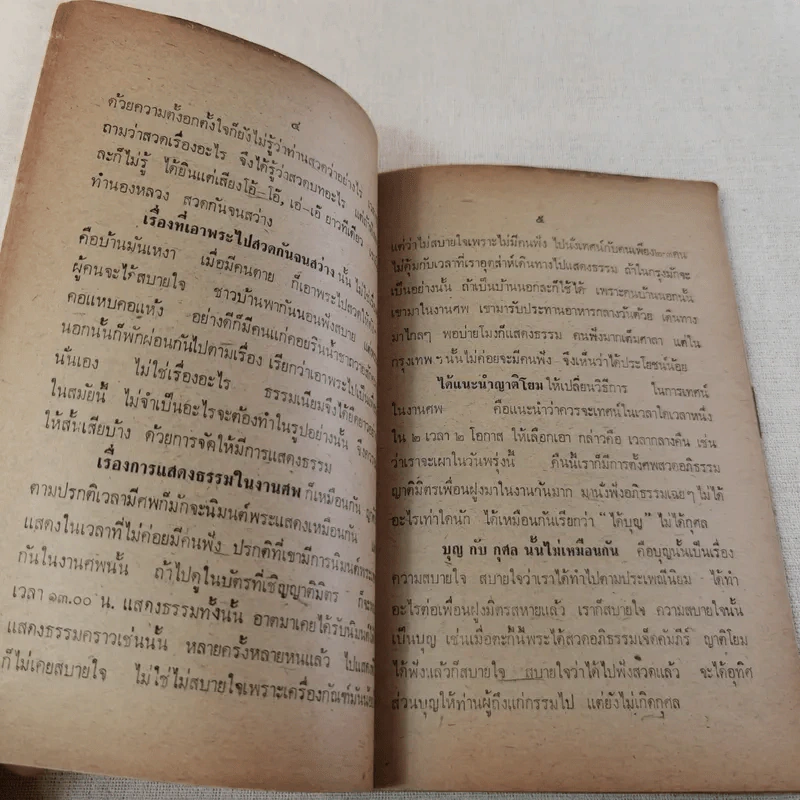 ๔
ด้วยความตั้งอกตั้งใจก็ยังไม่รู้ว่าท่านสวดว่าอย่างไร
ถามว่าสวดเรื่องอะไร จึงได้รู้ว่าสวดบทอะไร
ละก็ไม่รู้ ได้ยินแต่เสียงโอ้-โอ๊, เอ่-เอ๊ ยาวทีเดียว
ทำนองหลวง สวดกันจนสว่าง
เรื่องที่เอาพระไปสวดกันจนสว่าง นั้น
คือบ้านมันเหงา เมื่อมีคนตาย ก็เอาพระไปสวด
ผู้คนจะไร้สบายใจ ชาวบ้านพากันนอนฟังสบาย
คอแหบคอแห้ง อย่างดีก็มีคนแก่คอยรินน้ำชา
นอกนั้นก็พักผ่อนกันไปตามเรื่อง เรียกว่าเอาพระไปเป็น
นั่นเอง ไม่ใช่เรื่องอะไร ธรรมเนียมจึงได้ยืด
ในสมัยนี้ ไม่จำเป็นอะไรจะต้องทำในรูปอย่างนั้น
ให้สั้นเสียบ้าง ด้วยการจัดให้มีการแสดงธรรม
เรื่องการแสดงธรรมในงานศพ ก็เหมือนกัน
ตามปรกติเวลามีศพก็มักจะนิมนต์พระแสดงเหมือนกัน
แสดงในเวลาที่ไม่ค่อยมีคนฟัง ปรกติที่เขามีการนิมนต์พระ
กันในงานศพนั้น ถ้าไปดูในบัตรที่เชิญญาติมิตร
เวลา ๑๓.๐๐ น. แสดงธรรมทั้งนั้น อาตมาเคยได้รับนิมนต์
แสดงธรรมคราวเช่นนั้น หลายครั้งหลายหนแล้ว
ก็ไม่เคยสบายใจ ไม่ใช่ไม่สบายใจเพราะเครื่องกัณฑ์มัน
๕
แต่ว่าไม่สบายใจเพราะไม่มีคนฟัง ไปนั่งเทศน์กับคนเพียง
ไม่คุ้มกับเวลาที่เราอุตส่าห์เดินทางไปแสดงธรรม ถ้าในกรุงมักจะ
เป็นอย่างนั้น ถ้าเป็นบ้านนอกละก็ใช้ได้ เพราะคนบ้านนอกนั้น
เขามาในงานศพ เขามารับประทานอาหารกลางวันด้วย เดินทาง
มาไกลๆ พอบ่ายโมงก็แสดงธรรม คนฟังมากเต็มศาลา แต่ใน
กรุงเทพ ฯ นั้น ไม่ค่อยจะมีคนฟัง จึงเห็นว่าได้ประโยชน์น้อย
ได้แนะนำญาติโยม ให้เปลี่ยนวิธีการ ในการเทศน์
ในงานศพ คือแนะนำว่าควรจะเทศน์ในเวลาใดเวลาหนึ่ง
ใน ๒ เวลา ๒ โอกาส ให้เลือกเอา กล่าวคือ เวลากลางคืน เช่น
ว่าเราจะเผาในวันพรุ่งนี้ คืนนี้เราก็มีการตั้งศพสวดอภิธรรม
ญาติมิตรเพื่อนฝูงมาในงานกันมาก มานั่งฟังอภิธรรมเฉยๆ ไม่ได้
อะไรเท่าใดนัก ได้เหมือนกันเรียกว่า "ได้บุญ" ไม่ได้กุศล
บุญ กับ กุศล นั้นไม่เหมือนกัน คือบุญนั้นเป็นเรื่อง
ความสบายใจ สบายใจว่าเราได้ทำไปตามประเพณีนิยม ได้ทำ
อะไรต่อเพื่อนฝูงมิตรสหายแล้ว เราก็สบายใจ ความสบายใจนั้น
เป็นบุญ เช่นเมื่อตะกี้นี้พระได้สวดอภิธรรมเจ็ดคัมภีร์ ญาติโยม
ได้ฟังแล้วก็สบายใจ สบายใจว่าได้ไปฟังสวดแล้ว จะได้อุทิศ
ส่วนบุญให้ท่านผู้ถึงแก่กรรมไป แต่ยังไม่เกิดกุศล